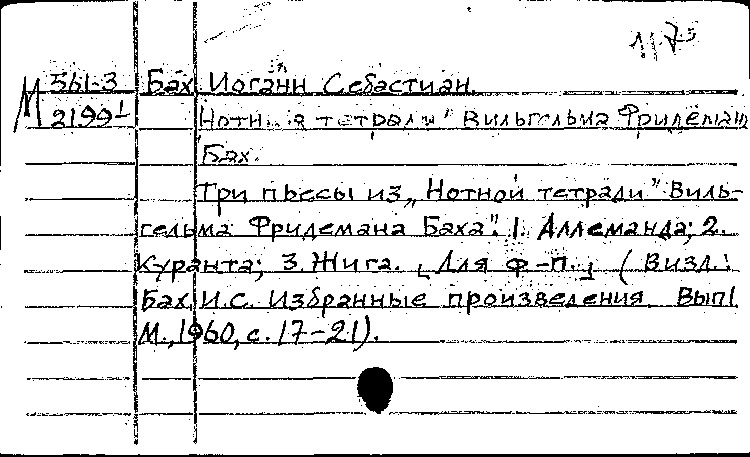 1175
М 561-3 Бах Иоганн Себастиан.
2199-1 "Нотная тетради" Вильгельма Фридеман
Бах.
Три пьесы из „Нотной тетради" Виль-
гельма Фридемана Баха". 1. Аллеманда; 2.
Куранта; 3. Жига. [Для ф-п.] (В изд.:
Бах, И.С. Избранные произведения. Вып 1
М., 1960, с. 17-21).